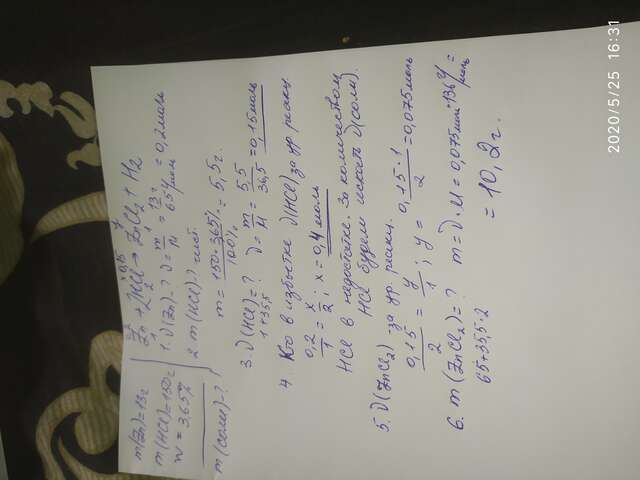 m(Zn)=13г
m(HCl)=150г
w = 3,65%
m(соли)-?
0,2 0,15 y
Zn + 2HCl → ZnCl2 + H2
1 2 1
1. ν(Zn)-? ν = m/M = 13г/65г/моль = 0,2моль
2. m(HCl)? чист.
m = 150·3,65%/100% = 5,5г.
3. ν(HCl)=? ν = m/M = 5,5/36,5 = 0,15моль
1+35,5
4. Кто в избытке ν(HCl) за ур. реакц.
0,2/1 = x/2; x = 0,4 моль
HCl в недостатке. За количеством
HCl будем искать ν(соли).
5. ν(ZnCl2) за ур. реакц.
0,15/2 = y/1; y = 0,15·1/2 = 0,075моль
6. m(ZnCl2)=? m = ν·M = 0,075моль·136г/моль =
65+35,5·2
= 10,2г.
2020/5/25 16:31